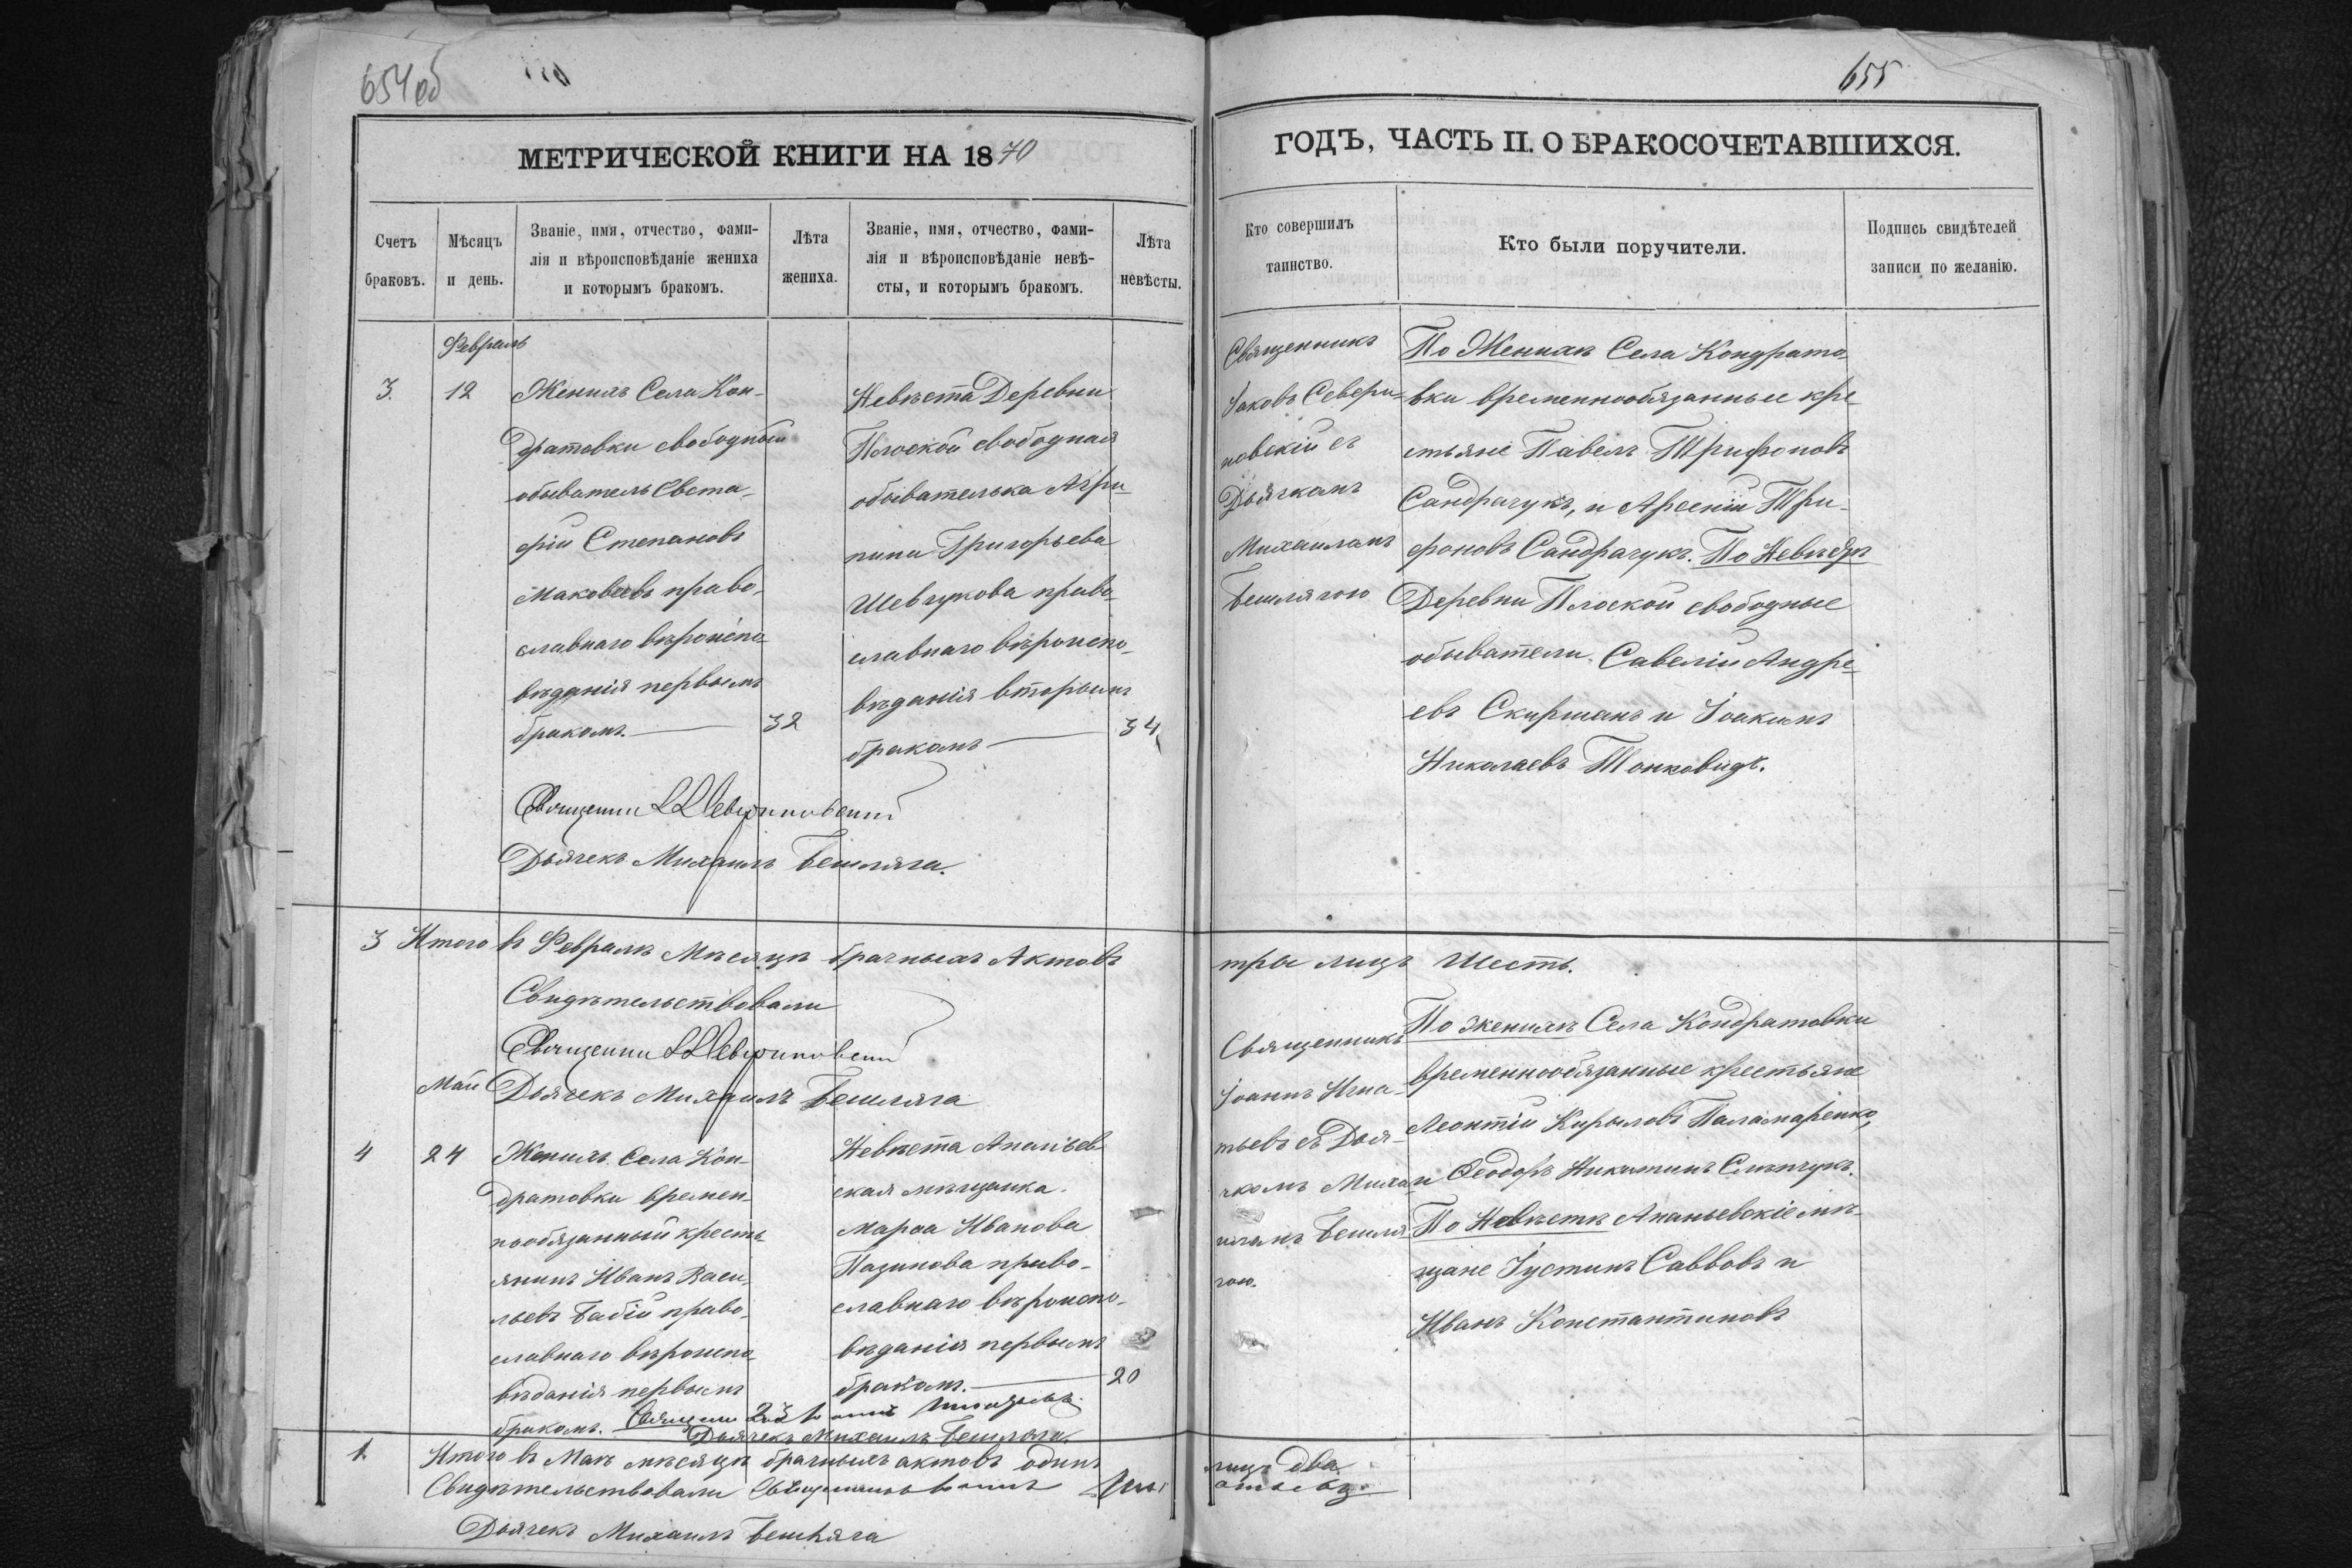 654 об
655
МЕТРИЧЕСКОЙ КНИГИ НА 1870
ГОДЪ, ЧАСТЬ II. О БРАКОСОЧЕТАВШИХСЯ.
Счетъ
браковъ.
Мѣсяцъ
и день.
Званіе, имя, отчество, фами-
лія и вѣроисповѣданіе жениха
и которымъ бракомъ.
Лѣта
жениха.
Званіе, имя, отчество, фами-
лія и вѣроисповѣданіе невѣ-
сты, и которымъ бракомъ.
Лѣта
невѣсты.
Кто совершилъ
таинство.
Кто были поручители.
Подпись свидѣтелей
записи по желанію.
Февраль
3. 12
Женихъ Села Кон-
дратовки свободный
обыватель Евста-
фій Степановъ
Маковѣевъ право-
славнаго вѣроиспо-
вѣданія первымъ
бракомъ. 32
Невѣста Деревни
Плоской свободная
обывателька Агри-
пина Григорьева
Шевчукова право-
славнаго вѣроиспо-
вѣданія вторымъ
бракомъ 34
Священникъ
Іаковъ Севери-
новскій съ
Дьячкомъ
Михаиломъ
Бешлягою
По Женихѣ Села Кондрато
вки временнообязанные кре-
стьяне Павелъ Трифоновъ
Сандрачукъ, и Арсеній Три-
фоновъ Сандрачукъ. По Невѣстѣ
Деревни Плоской свободные
обыватели Савелій Андре-
евъ Скирманъ и Іоакимъ
Николаевъ Тонковидъ.
Дьячекъ Михаилъ Бешляга.
3 Итого въ Февралѣ Мѣсяцѣ брачныхъ Актовъ
три лицъ Шесть.
Свидѣтельствовали
Дьячекъ Михаилъ Бешляга
Май
4 24
Женихъ Села Кон-
дратовки времен-
нообязанный кресть-
янинъ Иванъ Васи-
льевъ Бабій право-
славнаго вѣроиспо-
вѣданія первымъ
бракомъ. 23
Невѣста Ананьев-
ская мѣщанка
Марѳа Иванова
Пазинова право-
славнаго вѣроиспо-
вѣданія первымъ
бракомъ. 20
Священникъ
Іоаннъ Игна-
тьевъ съ Дья-
чкомъ Миха-
иломъ Бешля-
гою.
По женихѣ Села Кондратовки
временнообязанные крестьяне
Леонтій Кириловъ Паламаренко,
и Ѳеодоръ Никитинъ Слипчукъ.
По Невѣстѣ Ананьевскіе мѣ-
щане Іустинъ Саввовъ и
Иванъ Константиновъ
Дьячекъ Михаилъ Бешляга.
1. Итого въ Маѣ мѣсяцѣ брачныхъ актовъ одинъ
лицъ два.
Свидѣтельствовали Священникъ Іоаннъ
Дьячекъ Михаилъ Бешляга